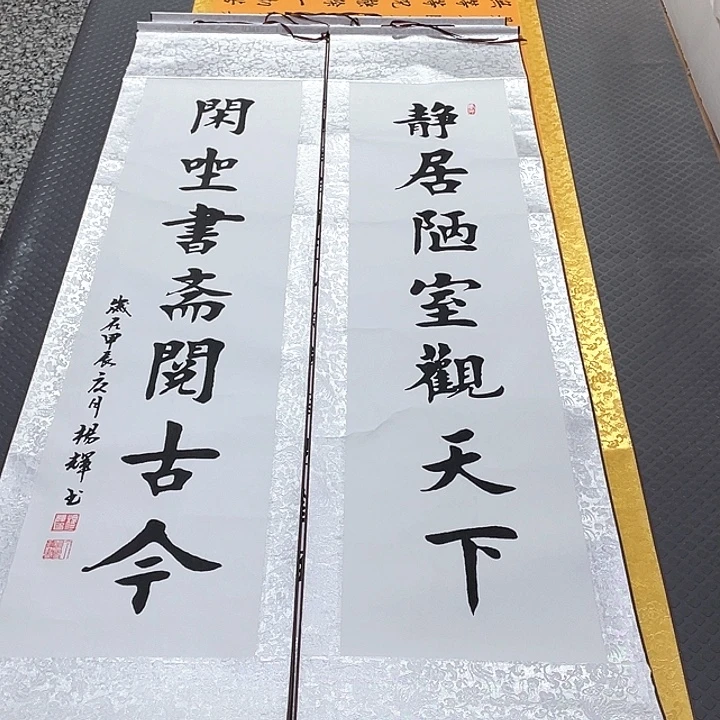 静居陋室觀天下
閑坐書斋閱古今
歲在甲辰亥月楊輝书